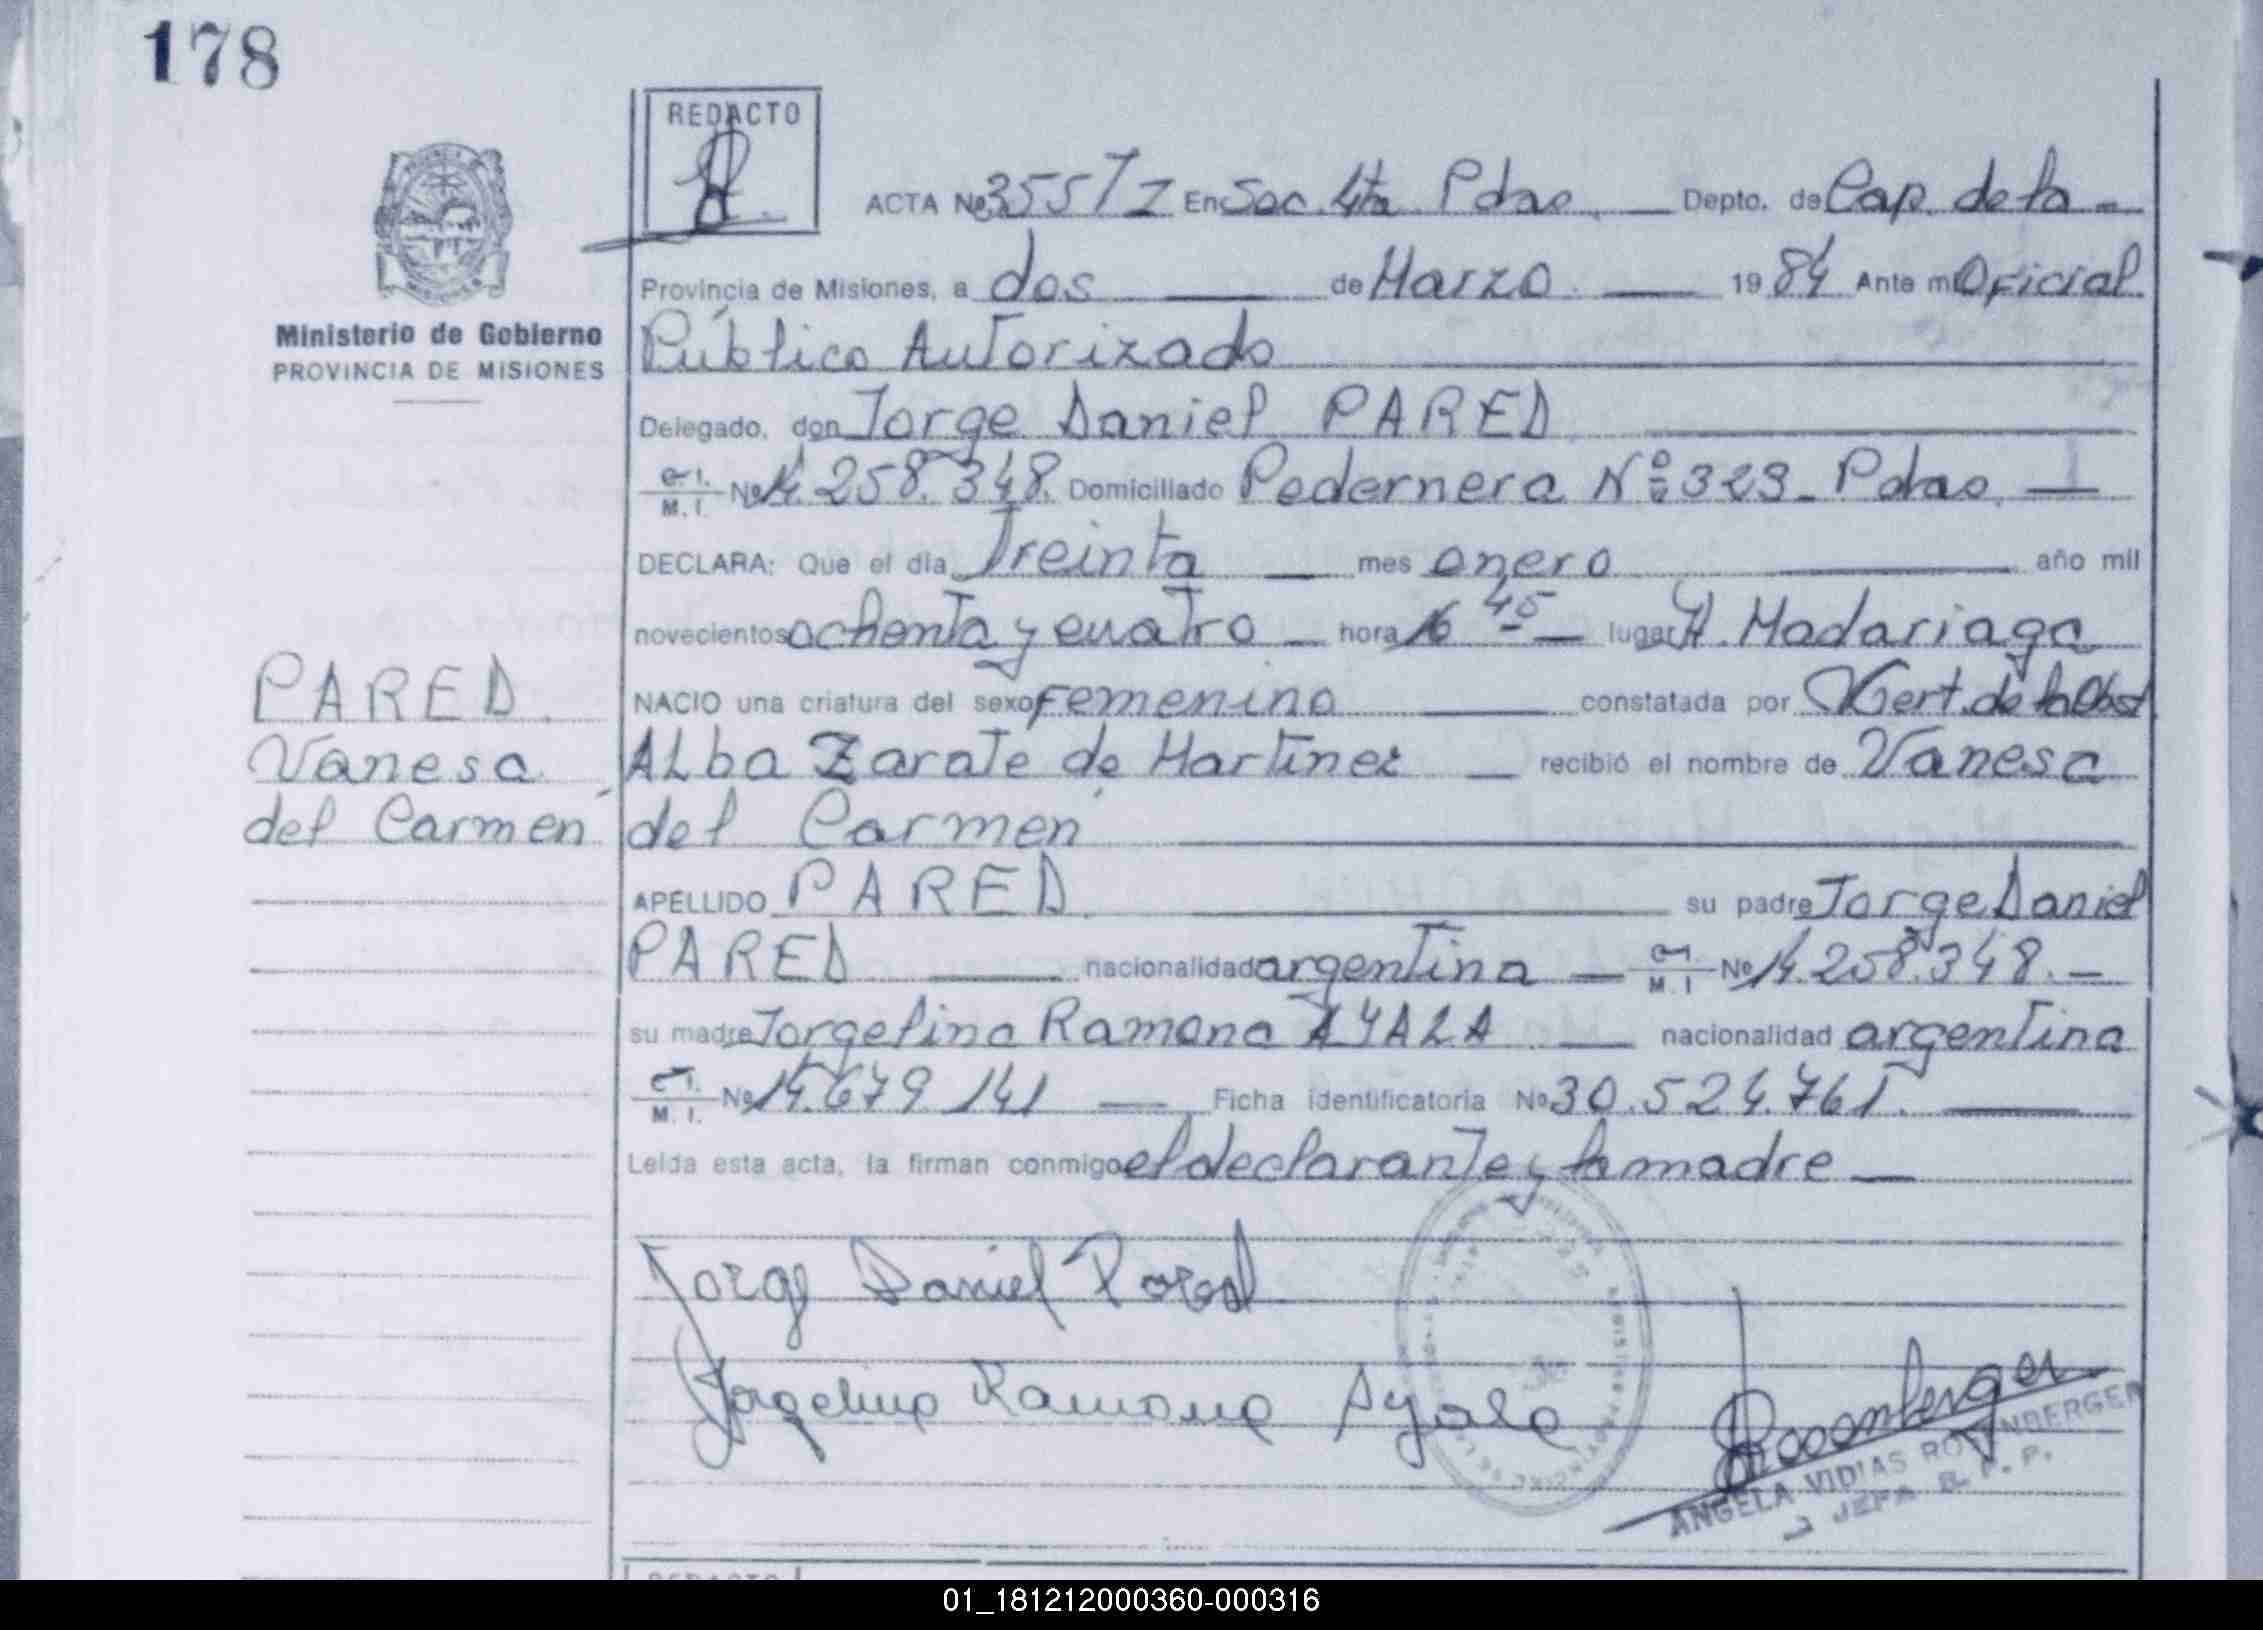 178
REDACTO
ACTA Nº 355/I En Sec. 4ta Pdas. Depto. de Cap. de la
Provincia de Misiones, a dos de Marzo 1984 Ante mi Oficial
Público Autorizado
Ministerio de Gobierno
PROVINCIA DE MISIONES
Delegado, don Jorge Daniel PARED
C.I. M.I. Nº 14.258.348. Domiciliado Pedernera Nº 323 - Pdas.
DECLARA: Que el día Treinta mes enero año mil
novecientos ochenta y cuatro hora 16 45 lugar H. Madariaga
NACIO una criatura del sexo Femenino constatada por Cert. de la Obst
Alba Zarate de Martinez recibió el nombre de Vanesa
del Carmen
PARED
Vanesa
del Carmen
APELLIDO PARED su padre Jorge Daniel
PARED nacionalidad argentina C.I. M.I Nº 14.258.348.
su madre Jorgelina Ramona AYALA nacionalidad argentina
C.I. M.I. Nº 14.679.141 Ficha identificatoria Nº 30.524.761.
Leída esta acta, la firman conmigo el declarante y la madre
Jorge Daniel Pared
Jorgelina Ramona Ayala
Rosenberger
ANGELA VIDIAS ROSENBERGER
JEFA
01_181212000360-000316